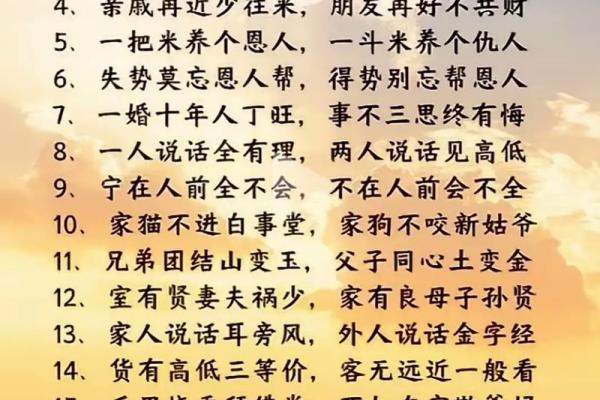 4、亲戚再近少往来，朋友再好不共财
5、一把米养个恩人，一斗米养个仇人
6、失势莫忘恩人帮，得势别忘帮恩人
7、一婚十年人丁旺，事不三思终有悔
8、一人说话全有理，两人说话见高低
9、宁在人前全不会，不在人前会不全
10、家猫不进白事堂，家狗不咬新姑爷
11、兄弟团结山变玉，父子同心土变金
12、室有贤妻夫祸少，家有良母子孙贤
13、家人说话耳旁风，外人说话金字经
14、货有高低三等价，客无远近一般看